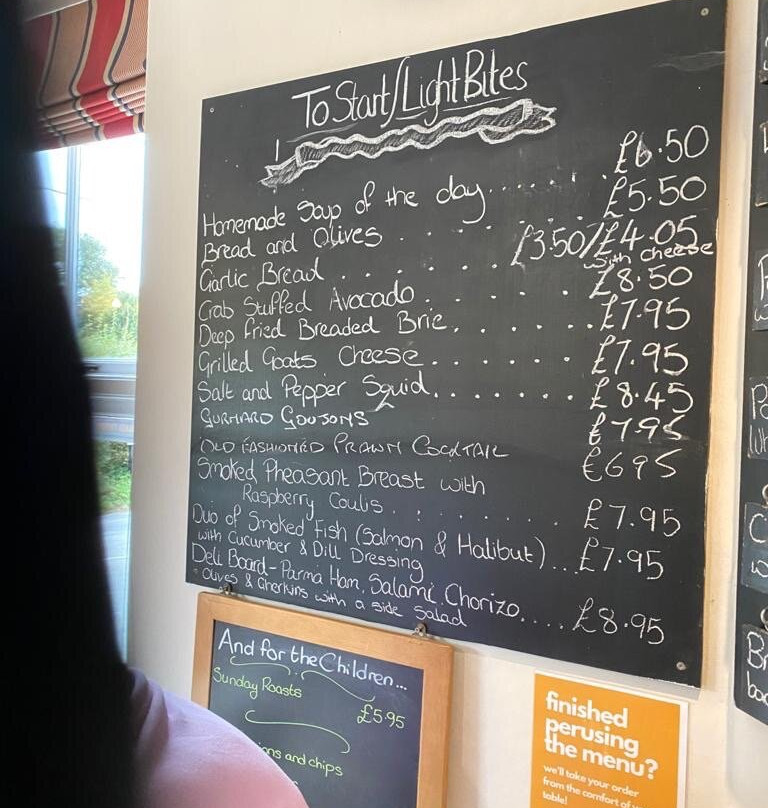 To Start/Light Bites
Homemade Soup of the day...... £6.50
Bread and Olives . . . . . . £5.50
Garlic Bread . . . . . . £3.50/£4.05
with cheese
Crab Stuffed Avocado. . . . . . £8.50
Deep Fried Breaded Brie. . . . . . £7.95
Grilled Goats Cheese. . . . . . £7.95
Salt and Pepper Squid. . . . . . . £8.45
GURNARD GOUJONS £795
OLD FASHIONED PRAWN COCKTAIL £695
Smoked Pheasant Breast with
Raspberry Coulis. . . . . . . . £7.95
Duo of Smoked Fish (Salmon & Halibut)... £7.95
with Cucumber & Dill Dressing
Deli Board - Parma Ham, Salami, Chorizo.... £8.95
Olives & Gherkins with a side Salad
And for the Children...
Sunday Roasts
£5.95
and chips
finished
perusing
the menu?
we'll take your order
from the comfort of
table!